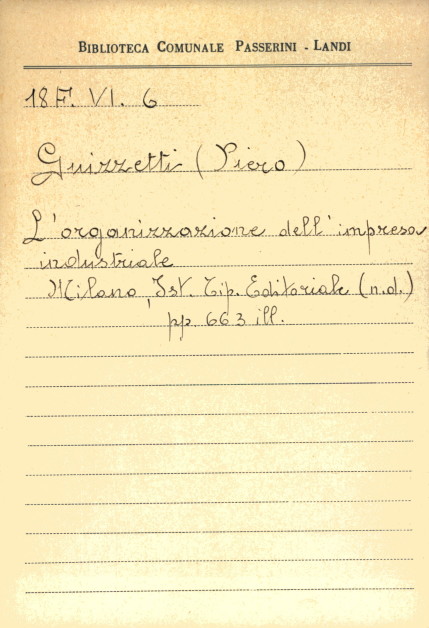 BIBLIOTECA COMUNALE PASSERINI - LANDI
18 F. VI. 6
Guizzetti (Piero)
L'organizzazione dell'impresa
industriale
Milano, Ist. Tip. Editoriale (n.d.)
pp 663 ill.